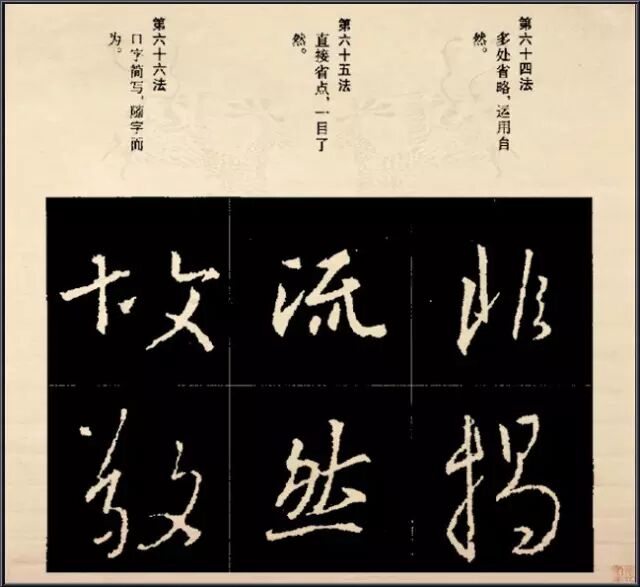 第六十四法
多处省略，运用自
然。
第六十五法
直接省点，一目了
然。
第六十六法
口字简写，随字而
为。
流
然
故
敬